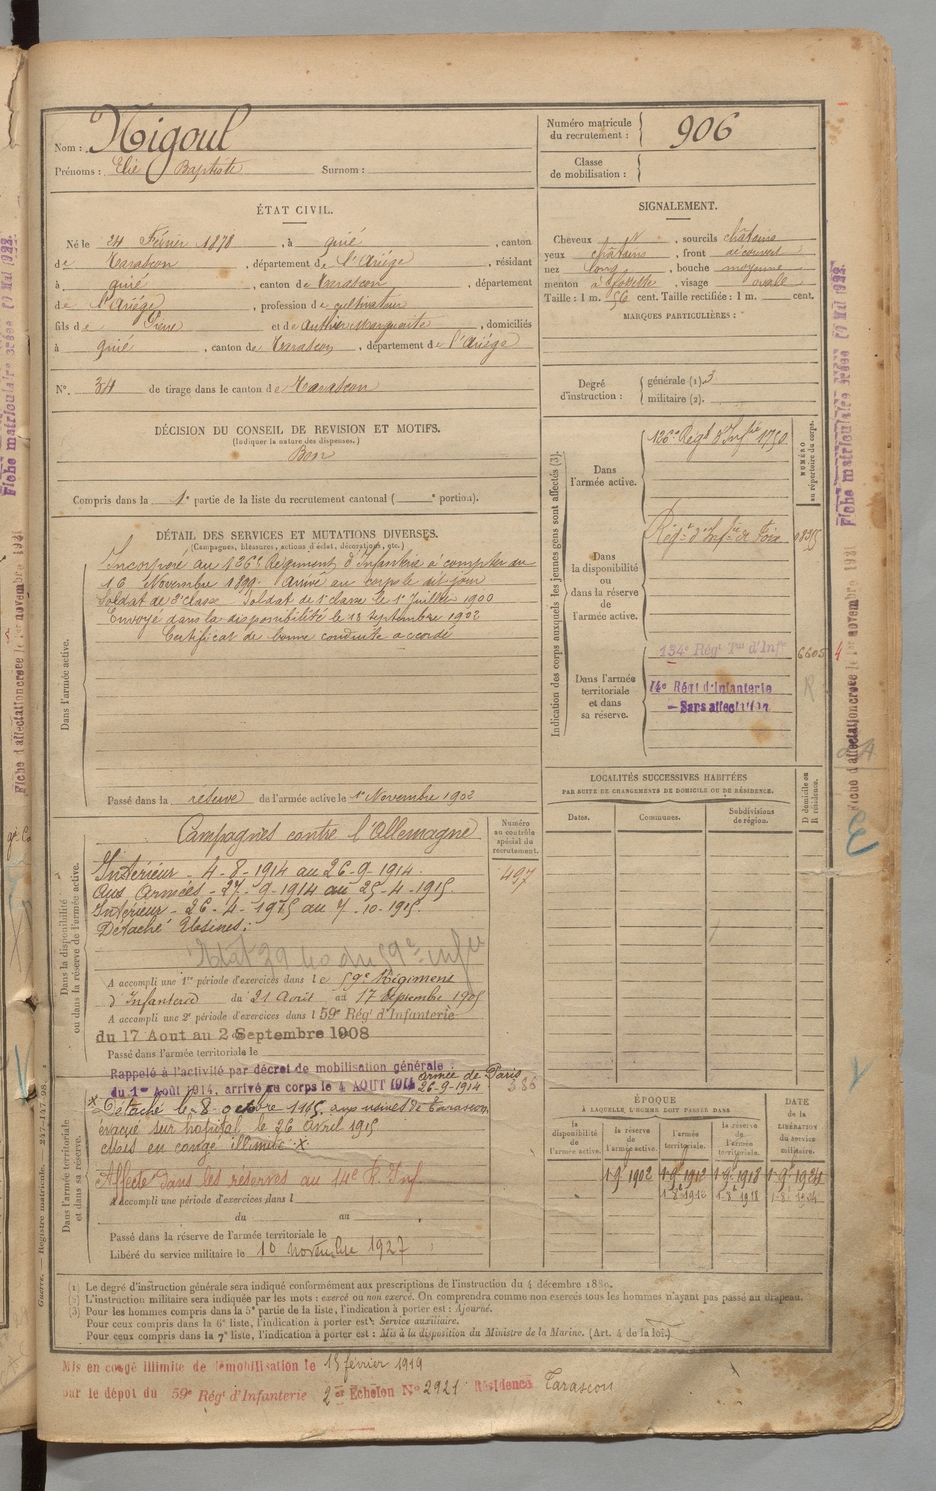 Nom : Nigoul
Prénoms : Elie Baptiste Surnom :
Numéro matricule du recrutement : 906
Classe de mobilisation :
ÉTAT CIVIL.
Né le 24 Février 1878, à quié, canton
de Tarascon, département de l'Ariége, résidant
à quié, canton de Tarascon, département
de l'Ariége, profession de cultivateur
fils de et de Authier Marguerite, domiciliés
à quié, canton de Tarascon, département de l'Ariége
N°. 34 de tirage dans le canton de Tarascon
SIGNALEMENT.
Cheveux, sourcils châtains
yeux châtains, front découvert
nez long, bouche moyenne
menton à fossette, visage ovale
Taille : 1 m. 56 cent. Taille rectifiée : 1 m. cent.
MARQUES PARTICULIÈRES :
Degré d'instruction : générale (1). 3
militaire (2).
DÉCISION DU CONSEIL DE REVISION ET MOTIFS.
(Indiquer la nature des dispenses.)
Bon
Compris dans la 1e partie de la liste du recrutement cantonal ( e portion).
DÉTAIL DES SERVICES ET MUTATIONS DIVERSES.
(Campagnes, blessures, actions d'éclat, décorations, etc.)
Dans l'armée active.
Incorporé au 126e Régiment d'Infanterie à compter du
16 Novembre 1899. Arrivé au corps le dit jour
Soldat de 2e classe Soldat de 1e classe le 1er Juillet 1900
Envoyé dans la disponibilité le 13 septembre 1902
Certificat de bonne conduite accordé
Passé dans la réserve de l'armée active le 1er Novembre 1902
Dans la disponibilité ou dans la réserve de l'armée active.
Numéro au contrôle spécial du recrutement.
497
Campagnes contre l'Allemagne
Intérieur - 4-8-1914 au 26-9-1914.
Aux Armées - 27-9-1914 au 25-4-1915.
Intérieur - 26-4-1915 au 7-10-1915.
Détaché Usines :
A accompli une 1re période d'exercices dans le 59e Régiment
d'Infanterie du 21 Août au 17 septembre 1905
A accompli une 2e période d'exercices dans l 59e Régt d'Infanterie
du 17 Aout au 2 Septembre 1908
Passé dans l'armée territoriale le
Dans l'armée territoriale et dans sa réserve.
Rappelé à l'activité par décret de mobilisation générale :
du 1er Août 1914, arrivé au corps le 4 AOUT 1914 armée de Paris
26-9-1914
x Détaché le 8 octobre 1915 aux usines de Tarascon.
évacué sur hôpital le 26 Avril 1915
en congé illimité x
Affecté dans les réserves au 14e R. Inf.
A accompli une période d'exercices dans l
du au
Passé dans la réserve de l'armée territoriale le
Libéré du service militaire le 10 novembre 1927
Indication des corps auxquels les jeunes gens sont affectés (3).
NUMÉRO au répertoire du corps.
Dans l'armée active.
126e Régt d'Infie
Dans la disponibilité ou dans la réserve de l'armée active.
Régt d'Infie de Foix
Dans l'armée territoriale et dans sa réserve.
134e Régt Tal d'Infie 6605
14e Régt d'Infanterie
- Sans affectation
LOCALITÉS SUCCESSIVES HABITÉES
PAR SUITE DE CHANGEMENTS DE DOMICILE OU DE RÉSIDENCE.
D domicile ou R résidence.
Dates. Communes. Subdivisions de région.
ÉPOQUE
À LAQUELLE L'HOMME DOIT PASSER DANS
DATE de la LIBÉRATION du service militaire.
la disponibilité de l'armée active. la réserve de l'armée active. l'armée territoriale. la réserve de l'armée territoriale.
1-9e 1902 1-9e 1912 1-9e 1918 1-9e 1924
1-8e 1912 1-8e 1918 1-8e 1924
Guerre. — Registre matricule.
(1) Le degré d'instruction générale sera indiqué conformément aux prescriptions de l'instruction du 4 décembre 1889.
(2) L'instruction militaire sera indiquée par les mots : exercé ou non exercé. On comprendra comme non exercés tous les hommes n'ayant pas passé au drapeau.
(3) Pour les hommes compris dans la 5e partie de la liste, l'indication à porter est : Ajourné.
Pour ceux compris dans la 6e liste, l'indication à porter est : Service auxiliaire.
Pour ceux compris dans la 7e liste, l'indication à porter est : Mis à la disposition du Ministre de la Marine. (Art. 4 de la loi.)
Mis en congé illimité de démobilisation le 15 février 1919
par le dépot du 59e Régt d'Infanterie 2e Echelon N° 2921 Résidence Tarascon
Fiche d'affectation créée le 1er novembre 1921
Fiche matriculaire créée